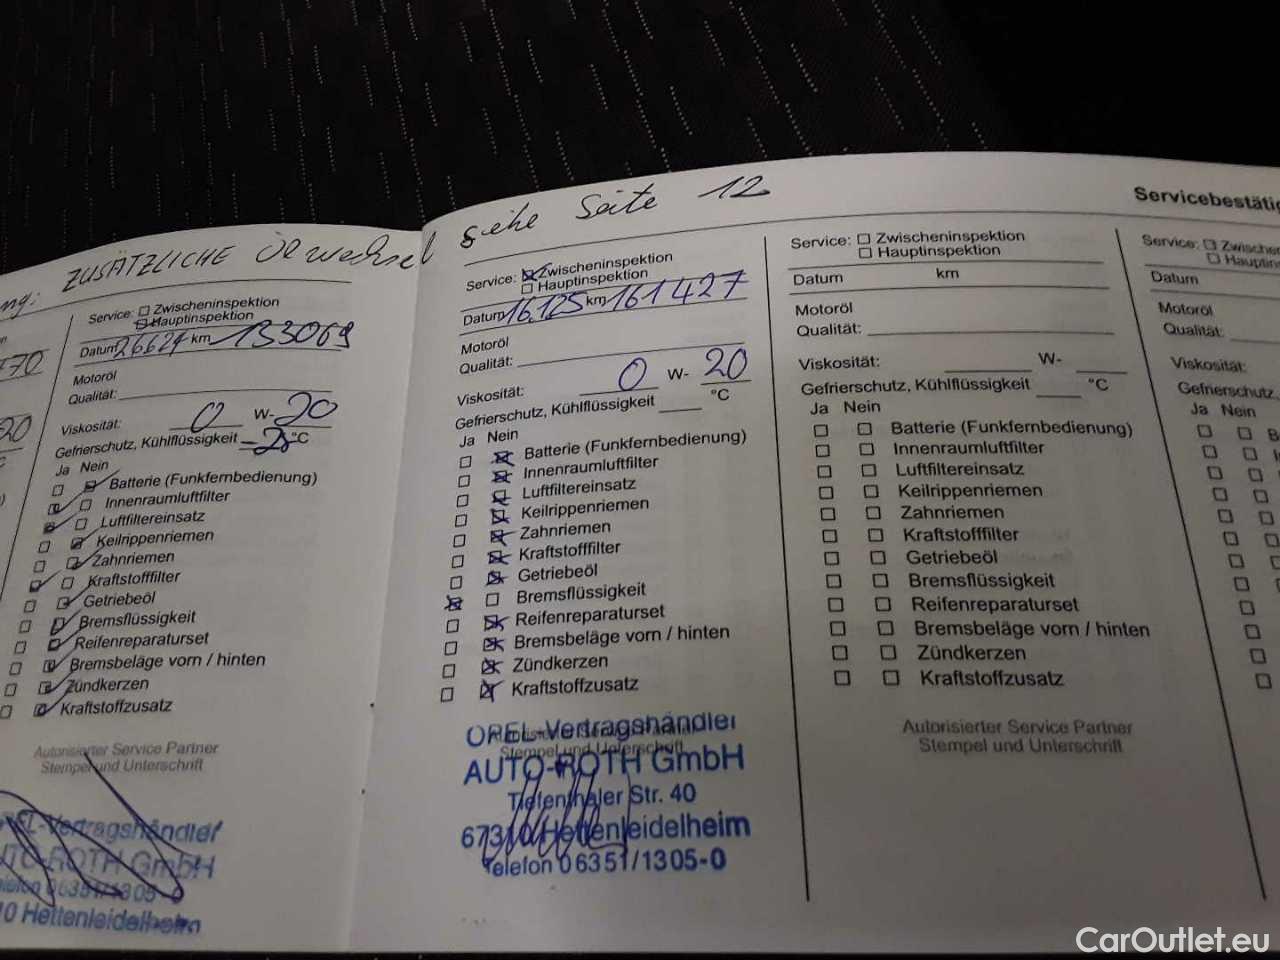 ng: ZUSÄTZLICHE Ölwechsel siehe Seite 12
Servicebestäti
70
20
Service: Zwischeninspektion
Hauptinspektion
Datum km 133069
Motoröl
Qualität:
Viskosität: 0 W- 20
Gefrierschutz, Kühlflüssigkeit °C
Ja Nein
Batterie (Funkfernbedienung)
Innenraumluftfilter
Luftfiltereinsatz
Keilrippenriemen
Zahnriemen
Kraftstofffilter
Getriebeöl
Bremsflüssigkeit
Reifenreparaturset
Bremsbeläge vorn / hinten
Zündkerzen
Kraftstoffzusatz
Autorisierter Service Partner
Stempel und Unterschrift
OPEL-Vertragshändler
AUTO-ROTH GmbH
Telefon 06351/1305-0
10 Hettenleidelheim
Service: Zwischeninspektion
Hauptinspektion
Datum 16.125 km 161427
Motoröl
Qualität:
Viskosität: 0 W- 20
Gefrierschutz, Kühlflüssigkeit °C
Ja Nein
Batterie (Funkfernbedienung)
Innenraumluftfilter
Luftfiltereinsatz
Keilrippenriemen
Zahnriemen
Kraftstofffilter
Getriebeöl
Bremsflüssigkeit
Reifenreparaturset
Bremsbeläge vorn / hinten
Zündkerzen
Kraftstoffzusatz
Autorisierter Service Partner
Stempel und Unterschrift
OPEL-Vertragshändler
AUTO-ROTH GmbH
Tiefenthaler Str. 40
67310 Hettenleidelheim
Telefon 06351/1305-0
Service: Zwischeninspektion
Hauptinspektion
Datum km
Motoröl
Qualität:
Viskosität: W-
Gefrierschutz, Kühlflüssigkeit °C
Ja Nein
Batterie (Funkfernbedienung)
Innenraumluftfilter
Luftfiltereinsatz
Keilrippenriemen
Zahnriemen
Kraftstofffilter
Getriebeöl
Bremsflüssigkeit
Reifenreparaturset
Bremsbeläge vorn / hinten
Zündkerzen
Kraftstoffzusatz
Autorisierter Service Partner
Stempel und Unterschrift
Service: Zwischen
Hauptin
Datum
Motoröl
Qualität:
Viskosität:
Gefrierschutz,
Ja Nein
CarOutlet.eu